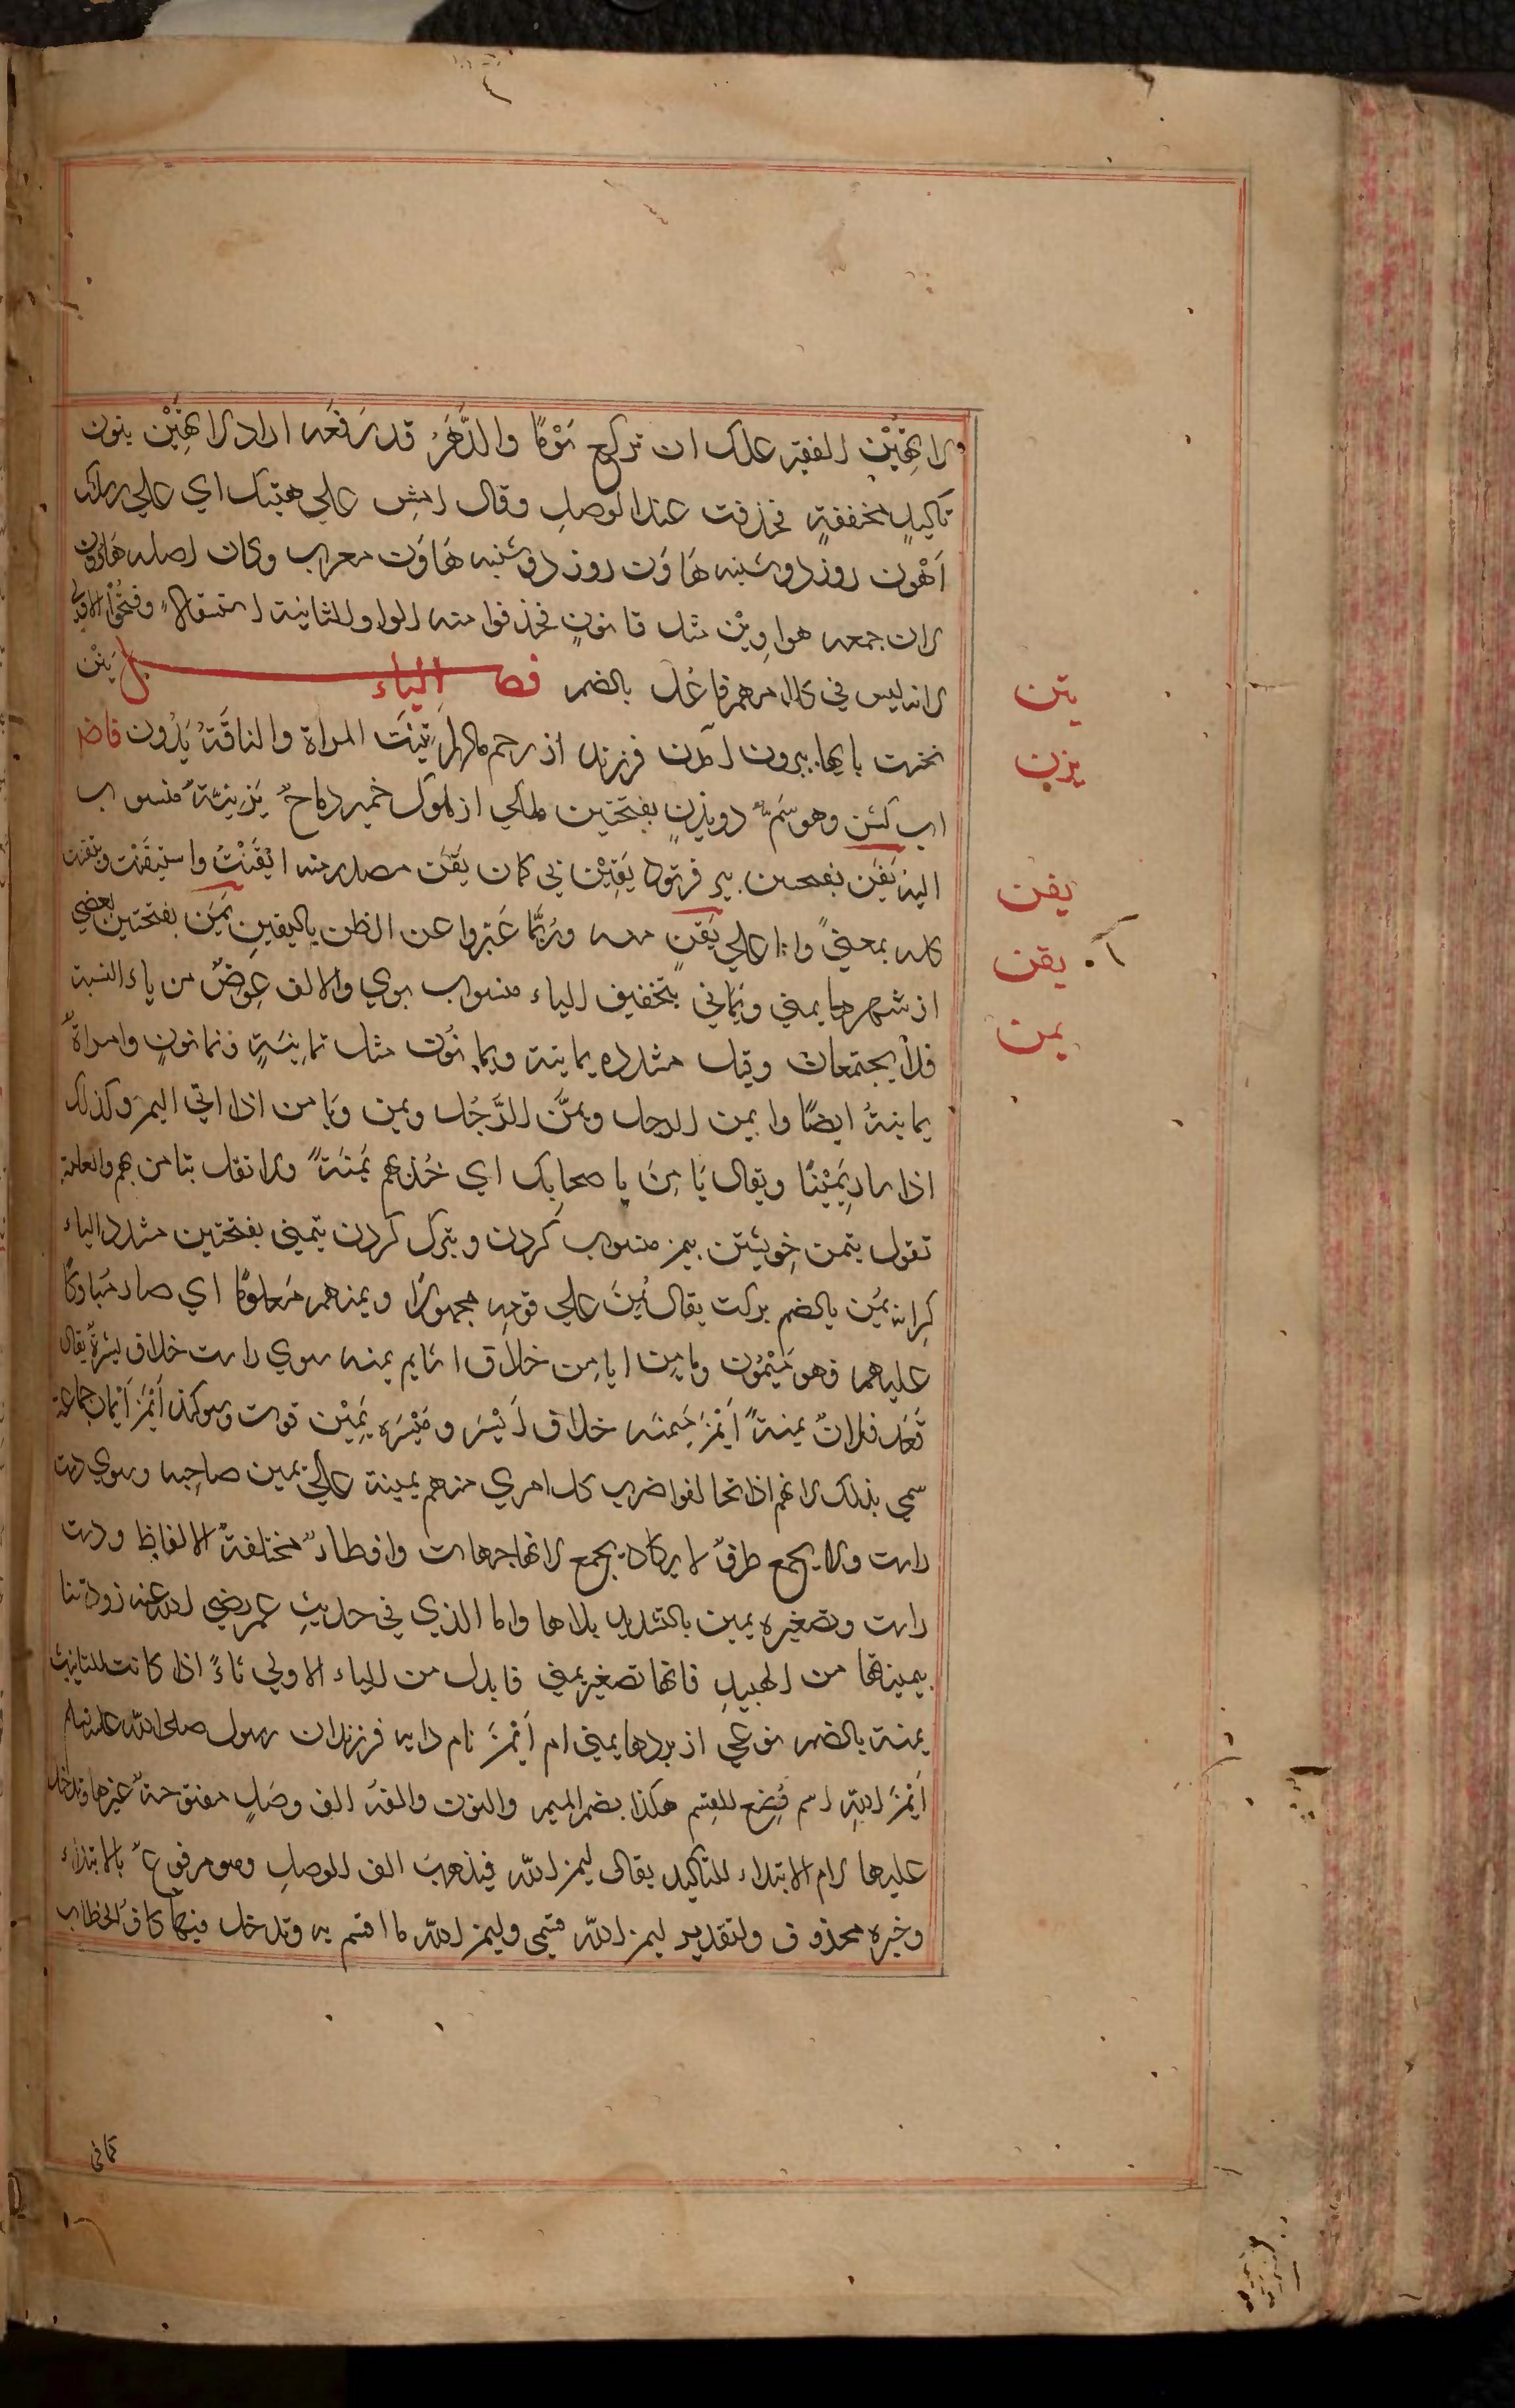 ولا تهين الفقير علك ان تركع يوما والدهر قد رفعه اراد لا تهينن بنون
تاكيد مخففة فحذفت عند الوصل وقال امش علي هينتك اي علي رسلك
اهون روز دوشنبه هاون روز دوشنبه هاون معرب وكان اصله هاوون
لان جمعه هواوين مثل قانون فحذفوا منه الواو الثانية استثقالا وفتحوا الاولي
لانه ليس في كلامهم فاعل بالضم فصل الياء يتن
نخست پايها بيرون آمدن فرزند از رحم مادر ايتنت المراة والناقة يزون
وهو سم ذو يزن بفتحتين ملكي از ملوك حمير رماح يزنية منسوب
اليه يفن بفتحتين پير فرتوت يقين بي كمان يقن مصدر منه ايقنت واستيقنت وتيقنت
كله بمعني وانا علي يقن منه وربما عبروا عن الظن باليقين يمن بفتحتين بعضي
از شهرها يمني ويماني بتخفيف الياء منسوب بوي والالف عوض من ياء النسبة
فلا يجتمعان وقيل مشدده يمانية ويمانون مثل ثمانية وثمانون وامراة
يمانية ايضا وايمن الرجل ويمن الرجل ويمن ويامن اذا اتي اليمن وكذلك
اذا سار يمينا ويقال يامن يا صحابك اي خذ بهم يمنة ولا تقل تيامن بهم والعامة
تقول يتمن خويشتن بيمن منسوب كردن وتبرك كردن يتمني بفتحتين مشدد الياء
كرانه يمن بالضم بركت يقال يمن علي قومه مجهولا ويمنهم معلوما اي صار مباركا
عليهم فهو ميمون ويامن ايامن خلاف اشايم يمنه سوي راست خلاف يسرة يقال
قعد فلان يمنة ايمن ميمنه خلاف ايسر وميسره يمين قوت وسوكند ايمن ايمان جماعة
سمي بذلك لانهم اذا تحالفوا ضرب كل امري منهم يمينه علي يمين صاحبه وسوي دست
راست ولا يجمع ظرف لا يكاد يجمع لانها جهات واقطار مختلفة الالفاظ ودست
راست وتصغيره يمين بالتشديد بلاها واما الذي في حديث عمر رضي الله عنه زودتنا
يمينتيها من الهبيد فانها تصغير يمني فابدل من الياء الاولي تاء اذا كانت للتانيث
يمنة بالضم نوعي از بردها يمني ام ايمن نام دايه فرزندان رسول صلي الله عليه وسلم
ايمن الله اسم وضع للقسم هكذا بضم الميم والنون والفه الف وصل مفتوحة غيرها وتدخل
عليها لام الابتداء للتاكيد يقال ليمن الله فيذهب الف الوصل وهو مرفوع بالابتداء
وخبره محذوف والتقدير ليمن الله قسمي وليمن الله ما اقسم به وتدخل فيها كاف الخطاب
يتن
يزن
يفن
يقن
يمن